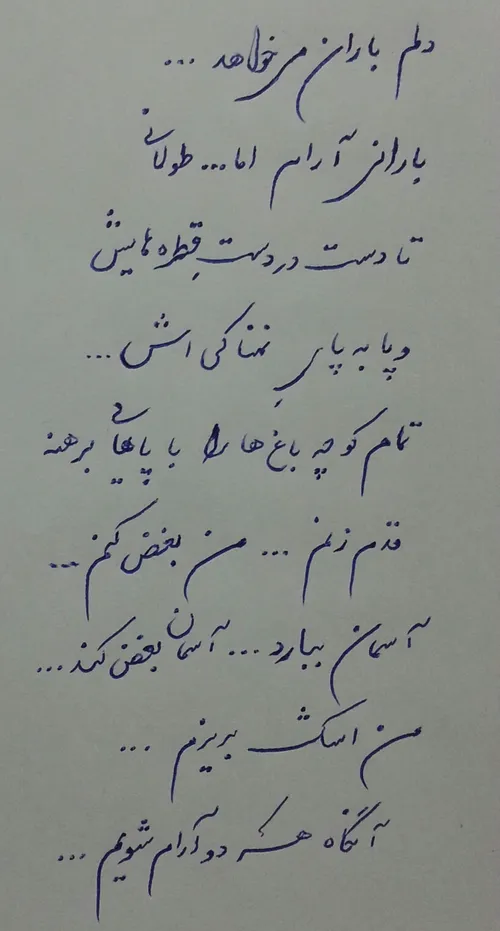 دلم باران می خواهد ...
بارانی آرام اما... طولانی
تا دست در دستِ قطره هایش
و پا به پایِ نمناکی اش ...
تمام کوچه باغ ها را با پاهایی برهنه
قدم زنم ... من بغض کنم ...
آسمان ببارد ... آسمان بغض کند ...
من اشک بریزم ...
آنگاه هر دو آرام شویم ...